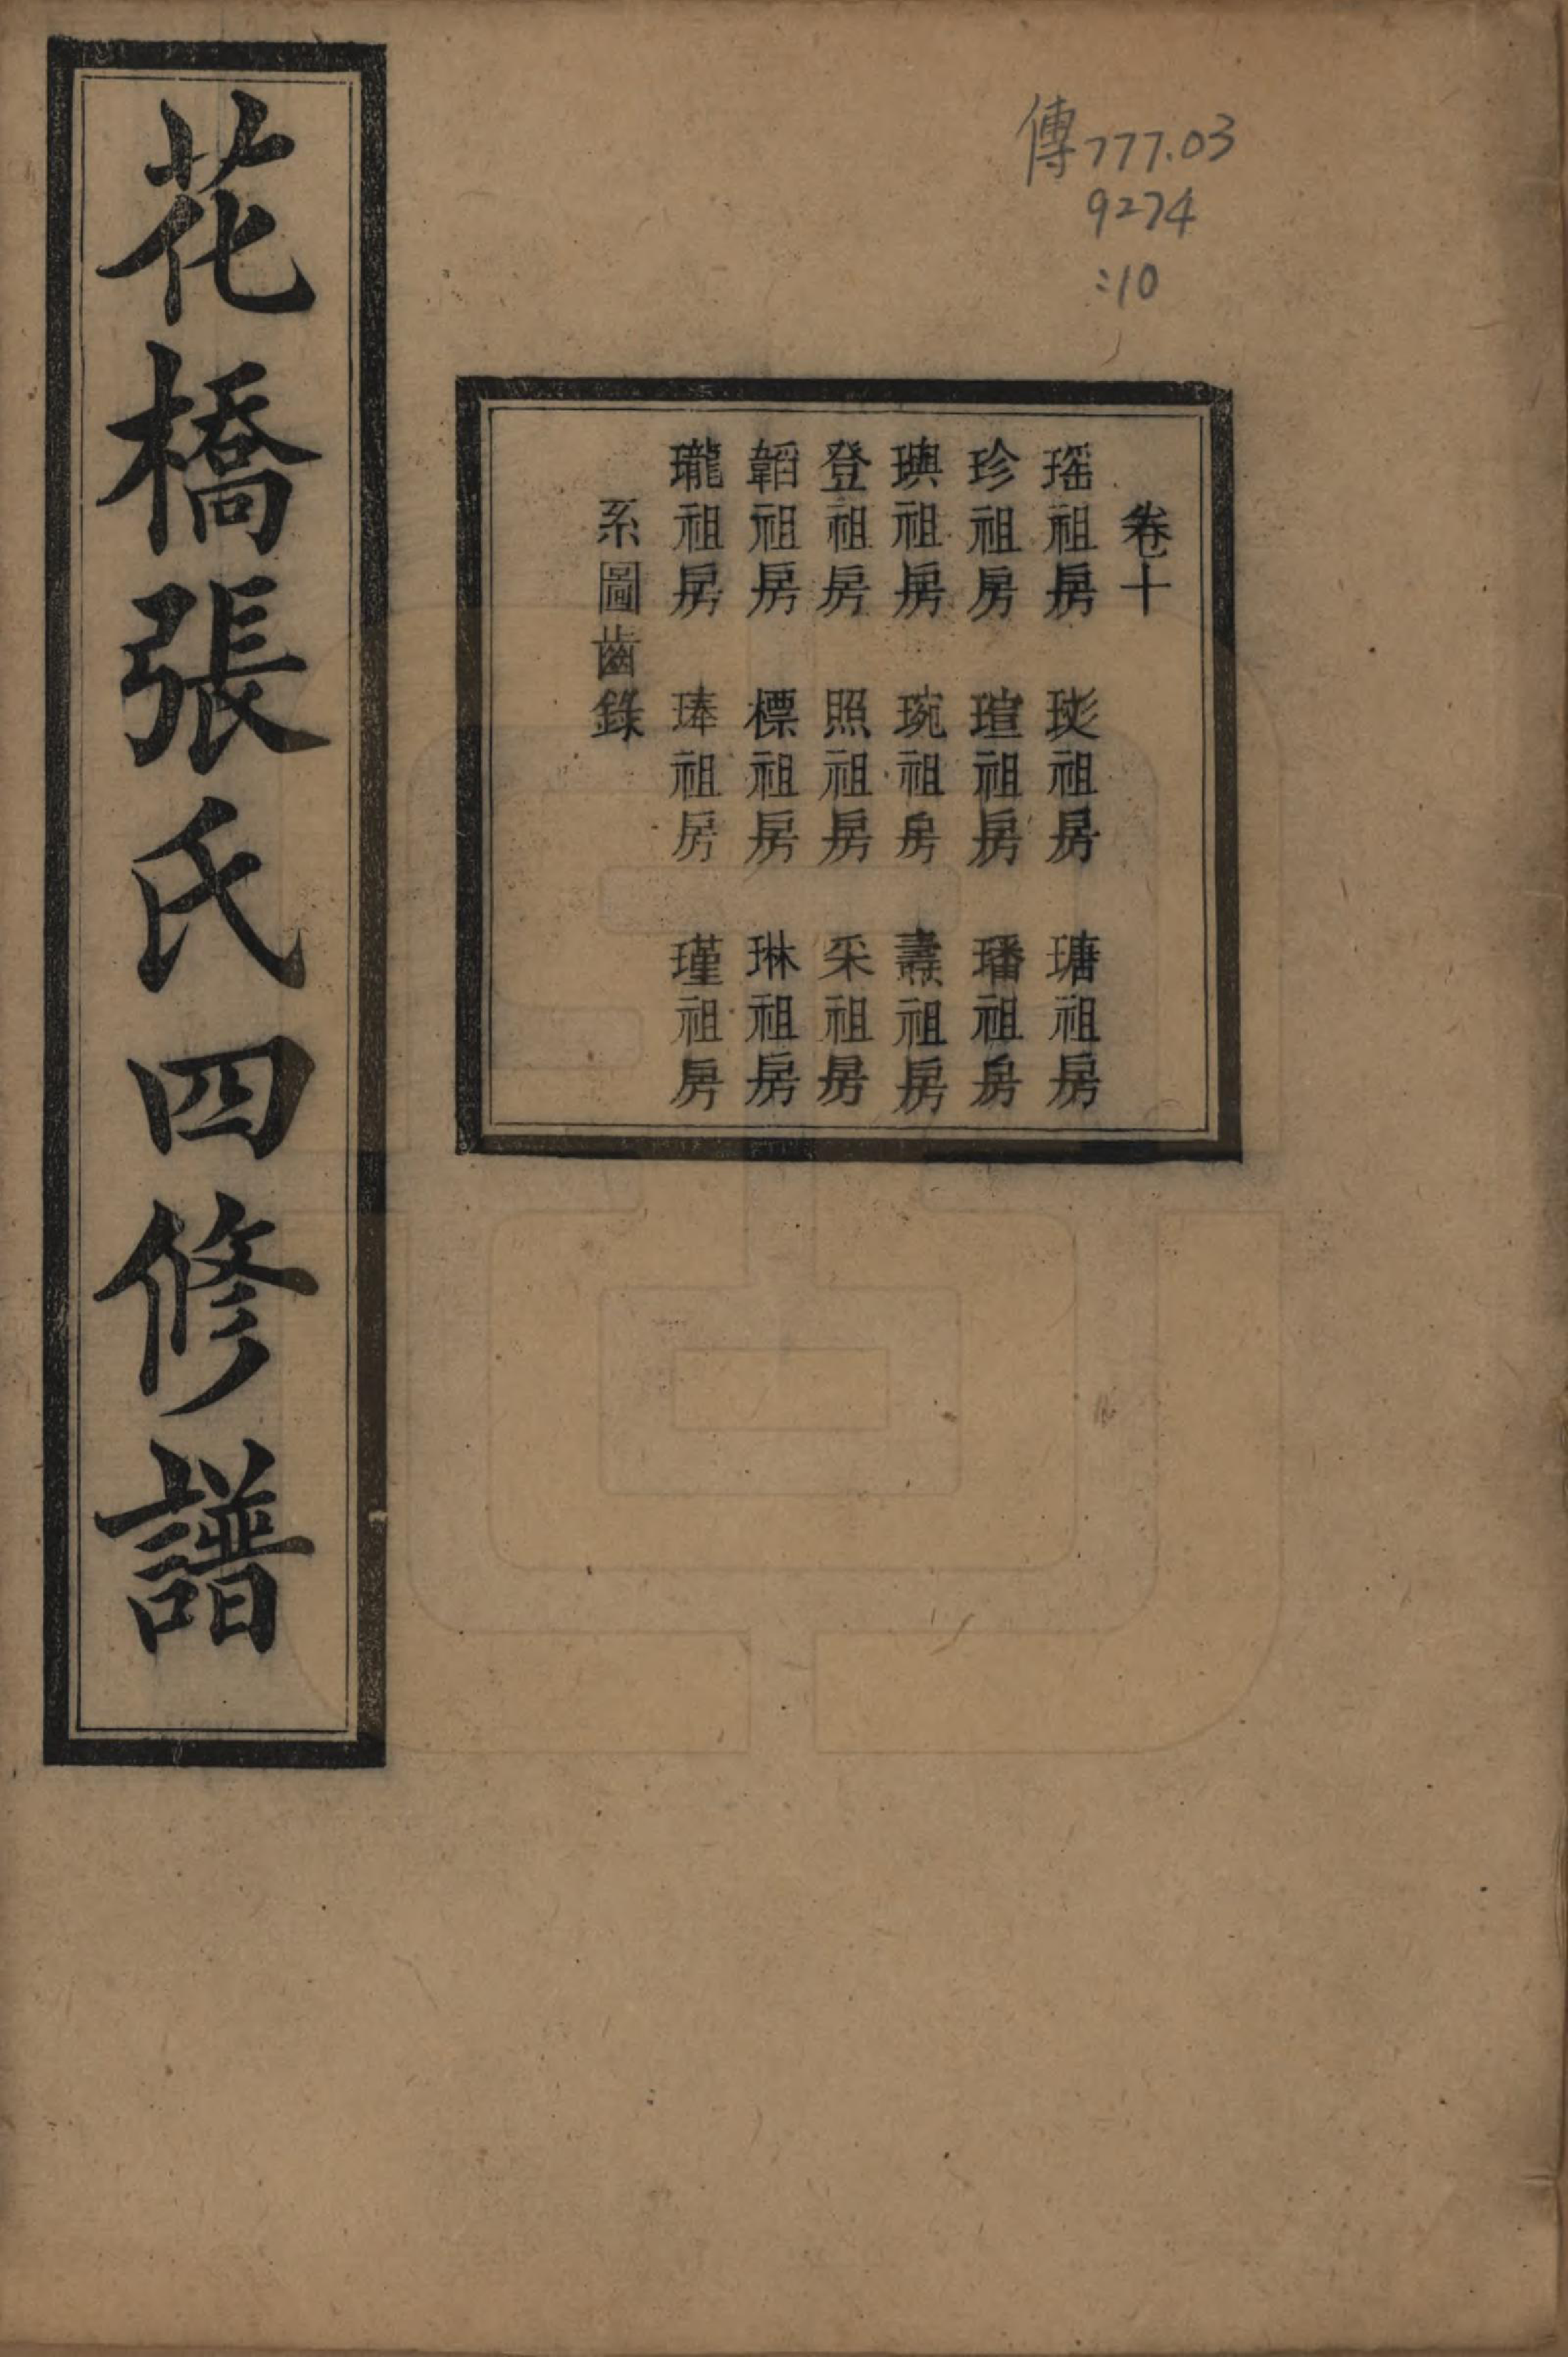 傳777.03
9274
:10
卷十
瑶祖房 琰祖房 瑭祖房
珍祖房 瑄祖房 璠祖房
璵祖房 琬祖房 燾祖房
登祖房 照祖房 采祖房
韜祖房 標祖房 琳祖房
瓏祖房 琫祖房 瑾祖房
系圖齒錄
花橋張氏四修譜